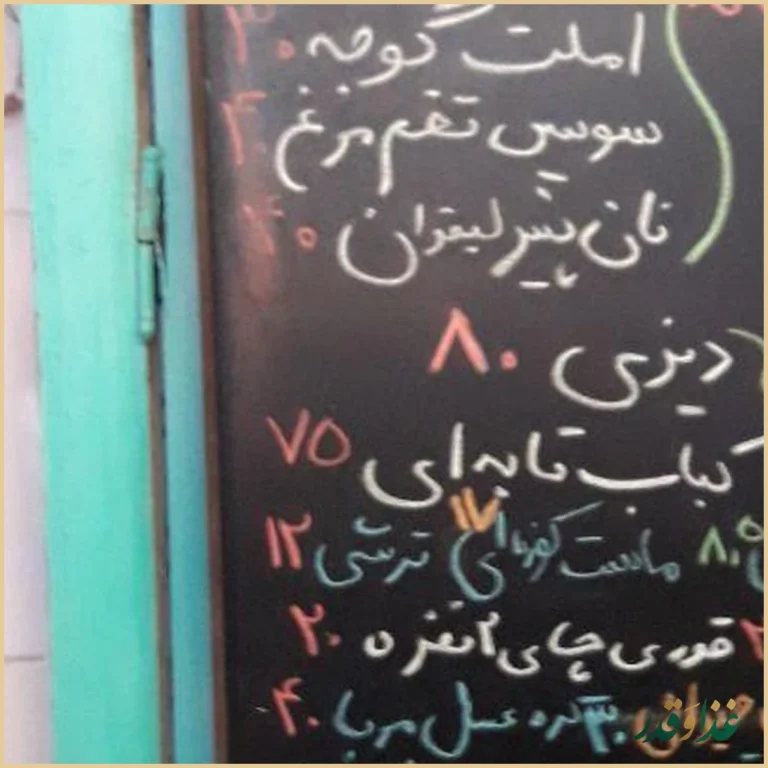 املت گوجه ۳۰
سوسیس تخم مرغ ۴۰
نان پنیر لیقوان ۴۰
دیزی ۸۰
کباب تابه ای ۷۵
۸,۵ ماست کوزه ای ۱۷ ترشی ۱۲
قوری چای ۲ نفره ۲۰
کره عسل مربا ۴۰
غذا و قدر